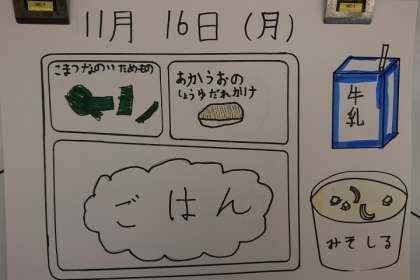 11月 16日 (月)
こまつなのいためもの
あかうおの
しょうゆだれかけ
牛乳
ごはん
みそしる